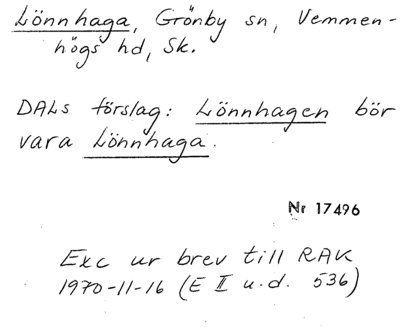 Lönnhaga, Grönby sn, Vemmen-
högs hd, Sk.
DALs förslag: Lönnhagen bör
vara Lönnhaga.
Nr 17496
Exc ur brev till RAK
1970-11-16 (E II u.d. 536)